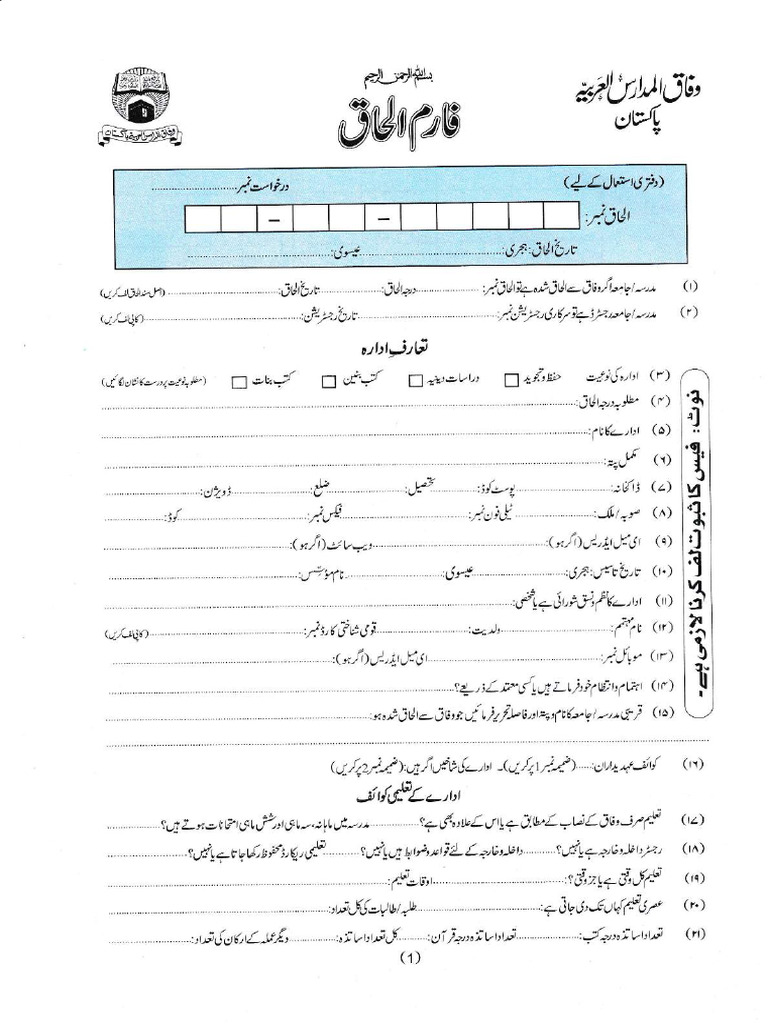 وفاق المدارس العربیہ
پاکستان
بسم اللہ الرحمن الرحیم
فارم الحاق
وفاق المدارس العربیہ پاکستان
(دفتری استعمال کے لیے) درخواست نمبر
الحاق نمبر: – –
تاریخ الحاق: ہجری: عیسوی:
(۱) مدرسہ/جامعہ اگر وفاق سے الحاق شدہ ہے تو الحاق نمبر: درجہ الحاق: تاریخ الحاق: (اصل سند الحاق لف کریں)
(۲) مدرسہ/جامعہ رجسٹرڈ ہے تو سرکاری رجسٹریشن نمبر: تاریخ رجسٹریشن: (کاپی لف کریں)
تعارف ادارہ
(۳) ادارہ کی نوعیت حفظ و تجوید دراسات دینیہ کتب بنین کتب بنات (مطلوبہ نوعیت پر درست کا نشان لگائیں)
(۴) مطلوبہ درجہ الحاق:
(۵) ادارے کا نام:
(۶) مکمل پتہ:
(۷) ڈاکخانہ: پوسٹ کوڈ: تحصیل: ضلع: ڈویژن:
(۸) صوبہ/ملک: ٹیلی فون نمبر: فیکس نمبر: کوڈ:
(۹) ای میل ایڈریس (اگر ہو): ویب سائٹ (اگر ہو):
(۱۰) تاریخ تاسیس: ہجری: عیسوی: نام مؤسّس:
(۱۱) ادارے کا نظم و نسق شورائی ہے یا شخصی:
(۱۲) نام مہتمم: ولدیت: قومی شناختی کارڈ نمبر: (کاپی لف کریں)
(۱۳) موبائل نمبر: ای میل ایڈریس (اگر ہو):
(۱۴) اہتمام و انتظام خود فرماتے ہیں یا کسی معتمد کے ذریعے؟
(۱۵) قریبی مدرسہ/جامعہ کا نام و پتہ اور فاصلہ تحریر فرمائیں جو وفاق سے الحاق شدہ ہو:
نوٹ: فیس کا ثبوت لف کرنا لازمی ہے۔
(۱۶) کوائف عہدیداران: (ضمیمہ نمبر 1 پر کریں)۔ ادارے کی شاخیں اگر ہیں: (ضمیمہ نمبر 2 پر کریں)
ادارے کے تعلیمی کوائف
(۱۷) تعلیم صرف وفاق کے نصاب کے مطابق ہے یا اس کے علاوہ بھی ہے؟ مدرسہ میں ماہانہ، سہ ماہی اور شش ماہی امتحانات ہوتے ہیں؟
(۱۸) رجسٹر داخلہ و خارجہ ہے یا نہیں؟ داخلہ و خارجہ کے لئے قواعد و ضوابط ہیں یا نہیں؟ تعلیمی ریکارڈ محفوظ رکھا جاتا ہے یا نہیں؟
(۱۹) تعلیم کل وقتی ہے یا جز وقتی؟: اوقات تعلیم:
(۲۰) عصری تعلیم کہاں تک دی جاتی ہے: طلبہ/طالبات کی کل تعداد:
(۲۱) تعداد اساتذہ درجہ کتب: تعداد اساتذہ درجہ قرآن: کل تعداد اساتذہ: دیگر عملہ کے ارکان کی تعداد:
(1)